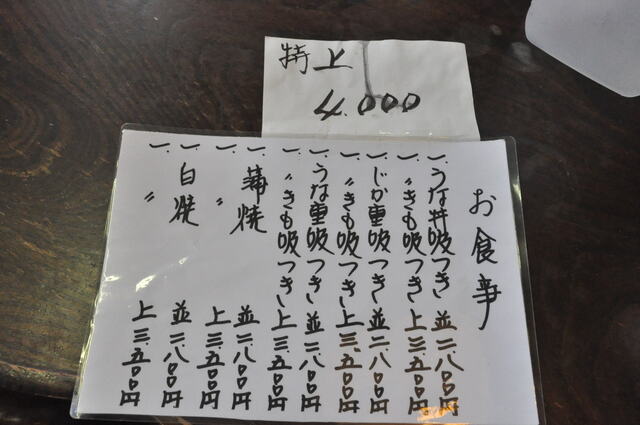 特上
4.000
お食事
一、うな丼吸つき 並二、八〇〇円
一、〃きも吸つき 上三、五〇〇円
一、じか重吸つき 並二、八〇〇円
一、〃きも吸つき 上三、五〇〇円
一、うな重吸つき 並二、八〇〇円
一、〃きも吸つき 上三、五〇〇円
一、蒲焼 並二、八〇〇円
一、〃 上三、五〇〇円
一、白焼 並二、八〇〇円
一、〃 上三、五〇〇円